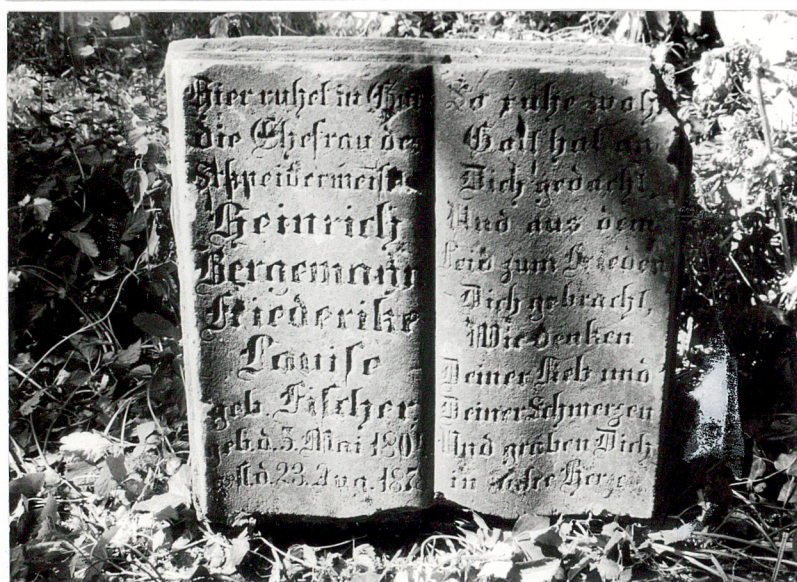 Hier ruhet in
die Ehefrau des
Schneidermeist
Heinrich
Bergemann
Friederike
Louise
geb. Fischer
geb. d. 5. Mai 180
d. 23. Aug. 187
So ruhe woh
Gott hat an
Dich gedacht,
Und aus dem
Leid zum Frieden
Dich gebracht,
Wir denken
Deiner Lieb und
Deiner Schmerzen
Und graben Dich
in unsre Herze